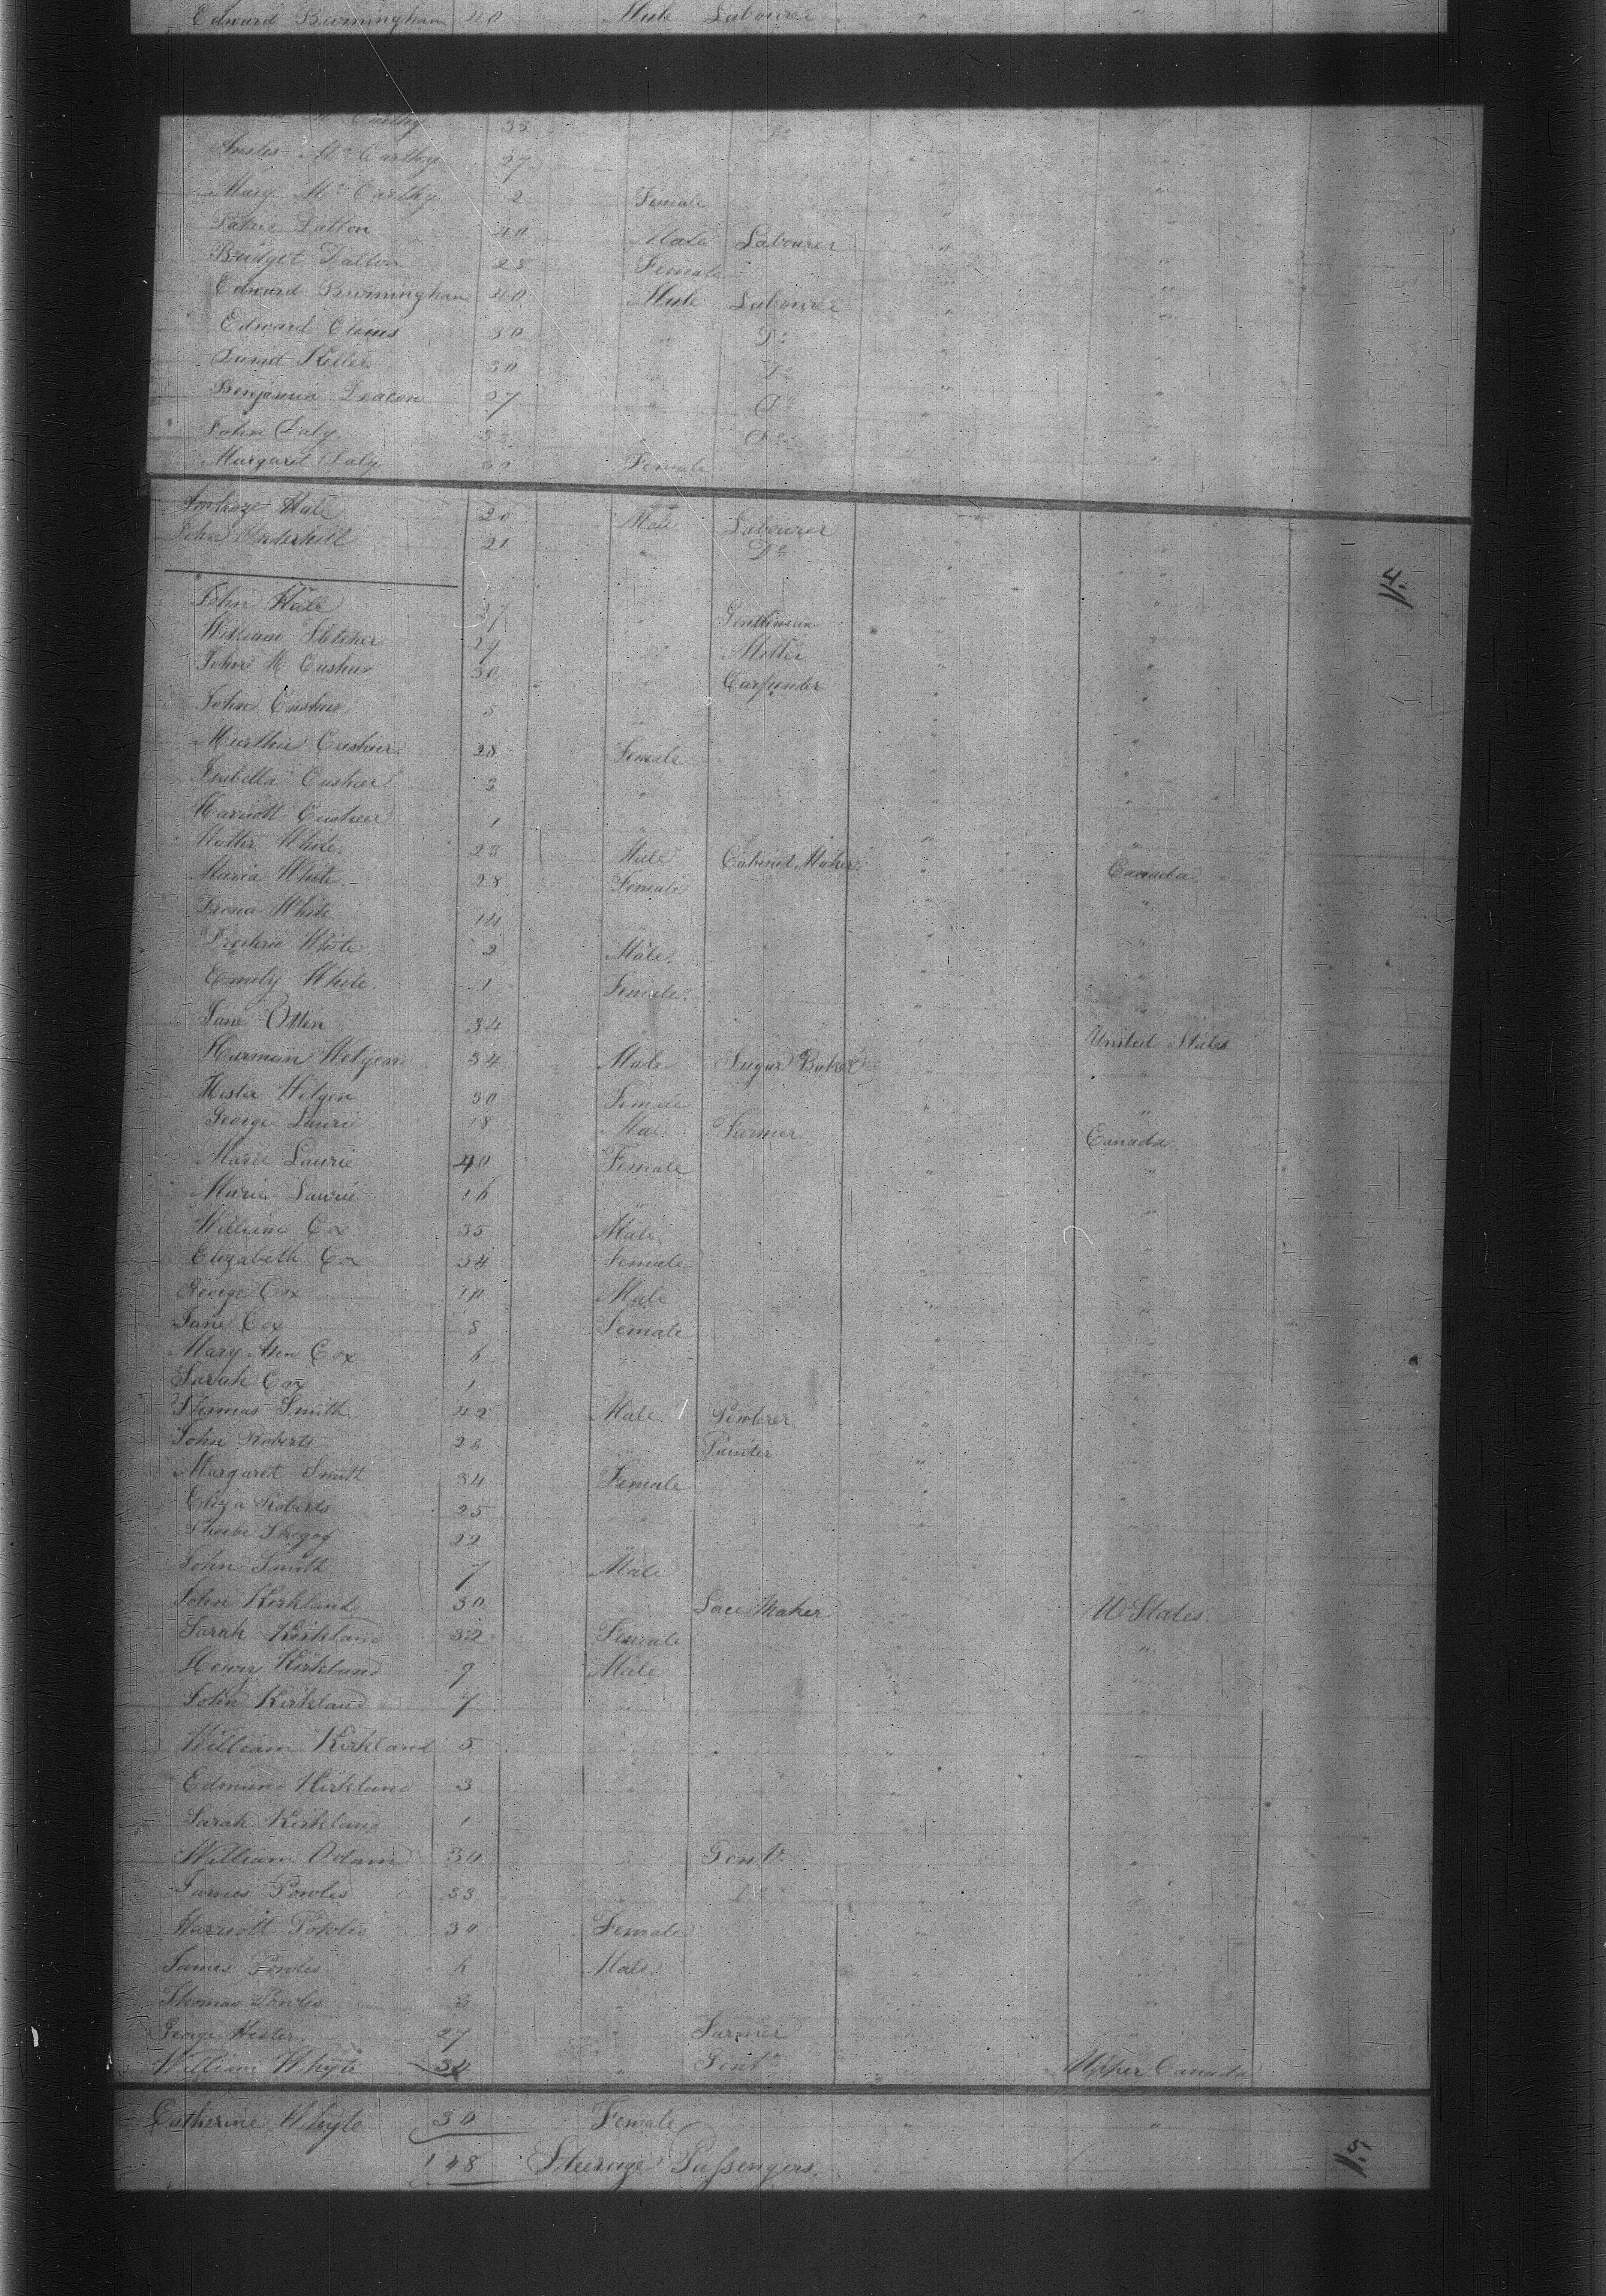 Edward Burmingham 40 Male Labourer " "
Mc Carthy 35 Do "
Mc Carthy 27 " "
Mary Mc Carthy 2 Female " "
Dalton 40 Male Labourer " "
Bridget Dalton 28 Female " "
Edward Burmingham 40 Male Labourer " "
Edward 30 " Do " "
Keller 30 " Do " "
Benjamin Deacon 27 " Do " "
John Daly 33 " Do " "
Margaret Daly 30 Female " "
Hale 20 Male Labourer " "
John Underhill 21 " Do " "
4.
John Hale 27 " Gentleman " "
William Fletcher 29 " Miller " "
John M Cushur 30 " Carpinder " "
John Cushur 5 " " "
Marthur Cushur 28 Female " "
Isabella Cushur 3 " " "
Harriott Cushur 1 " " "
Walter White 23 Male Cabinet Maker " Canada
Maria White 28 Female " "
White 14 " " "
Frederic White 2 Male " "
Emily White 1 Female " "
Jane Otten 34 " " United States
Harman Welgen 34 Male Sugar Baker " "
Hester Welgen 30 Female " "
George Laurie 18 Male Farmer " Canada
Marie Laurie 40 Female " "
Marie Laurie 16 " " "
William Cox 35 Male " "
Elizabeth Cox 34 Female " "
George Cox 10 Male " "
Jane Cox 8 Female " "
Mary Ann Cox 6 " " "
Sarah Cox 1 " " "
Thomas Smith 42 Male Pewterer " "
John Roberts 28 " Painter " "
Margaret Smith 34 Female " "
Eliza Roberts 25 " " "
Phoebe 22 " " "
John Smith 7 Male " "
John Kirkland 30 " Lace Maker " U States
Sarah Kirkland 32 Female " "
Henry Kirkland 9 Male " "
John Kirkland 7 " " "
William Kirkland 5 " " "
Edmund Kirkland 3 " " "
Sarah Kirkland 1 " "
William Adam 34 " Gent. " "
James Powles 33 " Do " "
Harriott Powles 30 Female " "
James Powles 6 Male " "
Thomas Powles 3 " " "
George Hester 27 " Farmer " "
William Whyte 34 " Gent. " Upper Canada
Catherine Whyte 30 Female " "
148 Steerage Passengers
5.